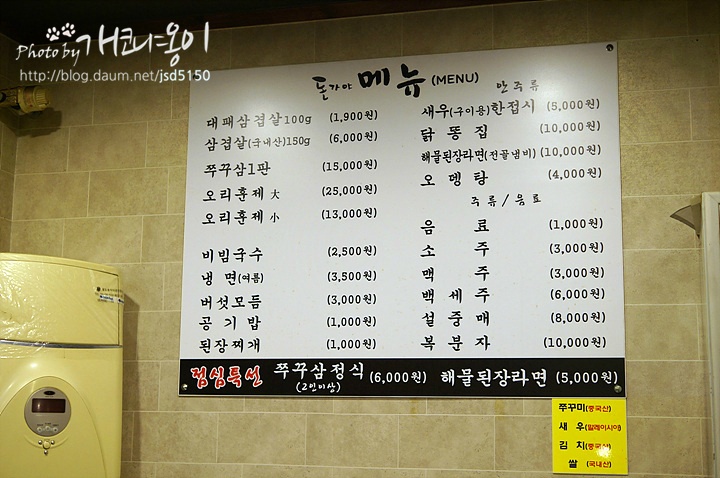 Photo by 개코냐옹이
http://blog.daum.net/jsd5150
돈가야 메뉴 (MENU)
대패삼겹살 100g (1,900원)
삼겹살(국내산)150g (6,000원)
쭈꾸삼1판 (15,000원)
오리훈제 大 (25,000원)
오리훈제 小 (13,000원)
비빔국수 (2,500원)
냉면(여름) (3,500원)
버섯모듬 (3,000원)
공기밥 (1,000원)
된장찌개 (1,000원)
안주류
새우(구이용)한접시 (5,000원)
닭똥집 (10,000원)
해물된장라면(전골냄비) (10,000원)
오뎅탕 (4,000원)
주류/음료
음료 (1,000원)
소주 (3,000원)
맥주 (3,000원)
백세주 (6,000원)
설중매 (8,000원)
복분자 (10,000원)
점심특선 쭈꾸삼정식 (2인이상) (6,000원) 해물된장라면 (5,000원)
쭈꾸미(중국산)
새우(말레이시아)
김치(중국산)
쌀 (국내산)